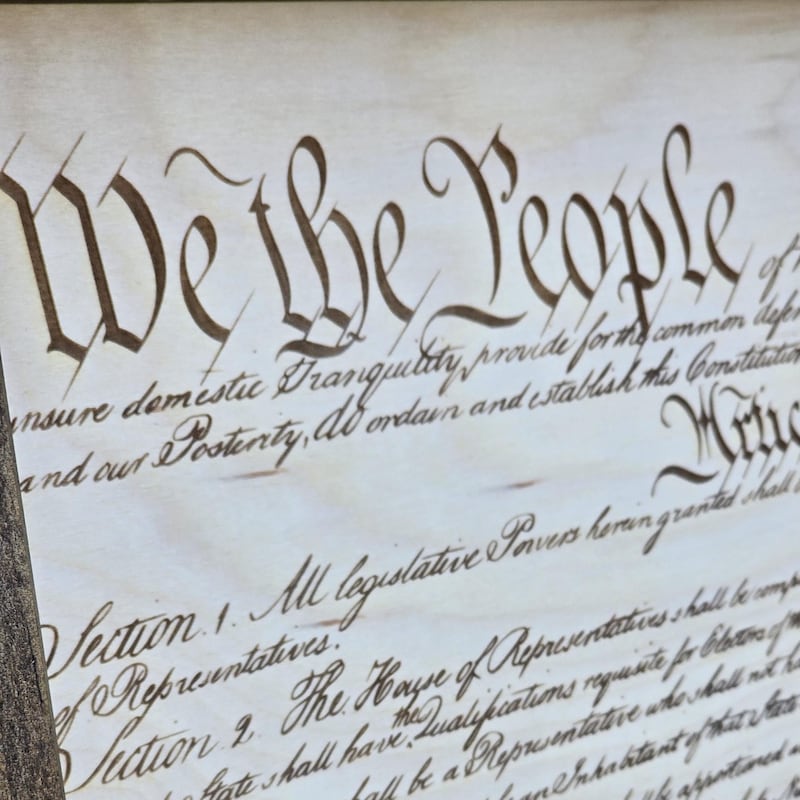 We the People of
insure domestic Tranquility, provide for the common defen
and our Posterity, do ordain and establish this Constitution
Artic
Section. 1. All legislative Powers herein granted shall
of Representatives.
Section. 2. The House of Representatives shall be comp
State shall have the Qualifications requisite for Electors of
shall be a Representative who shall not
an Inhabitant of that State
be apportioned